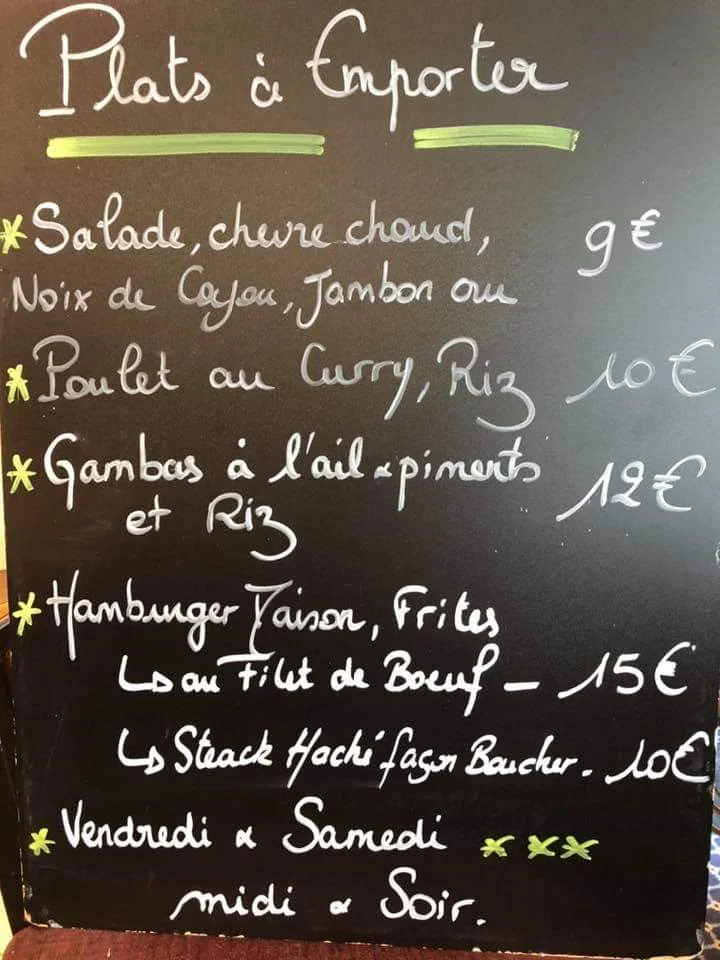 Plats à Emporter
* Salade, chevre chaud, 9€
Noix de Cajou, Jambon cru
* Poulet au Curry, Riz 10€
* Gambas à l'ail & piments 12€
et Riz
* Hamburger Maison, Frites
↳ au Filet de Boeuf – 15€
↳ Steack Haché façon Boucher. 10€
* Vendredi & Samedi ***
midi & Soir.